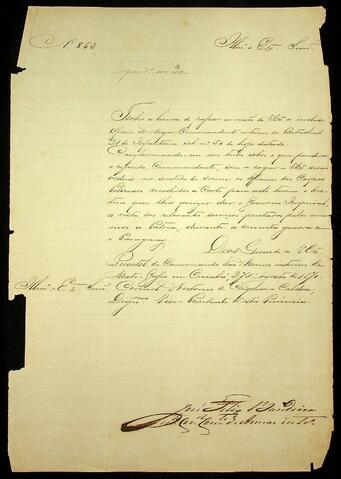 Nº 853 Illmo e Exmo Senr
Respondido em 30
Tenho a honra de passar as mãos de VEx o incluso
officio do Major Commandante interino do Batalhão
21 de Infantaria sob nº 54 de hoje datado.
Conformando-me em um todo sobre o que pondera
o referido Commandante, vou a rogar a VEx
ordem no sentido de serem os officiaes dos Corpos
recolhidos a Corte para ali terem o destino
que lhes quizer dar o Governo Imperial,
a vista dos relevantes serviços prestados pelos mesmos
a Patria, durante a cruenta guerra com
o Paraguay.
Deos Guarde a VEx
Quartel do Commando das Armas interino de
Matto-Grosso em Cuiabá 27 de Agosto de 1870
Illmo e Exmo Senr Coronel Antonio de Cerqueira Caldas,
Digmo Vice Presidente desta Provincia.
José Felix Bandeira
Cor. Come de Armas into